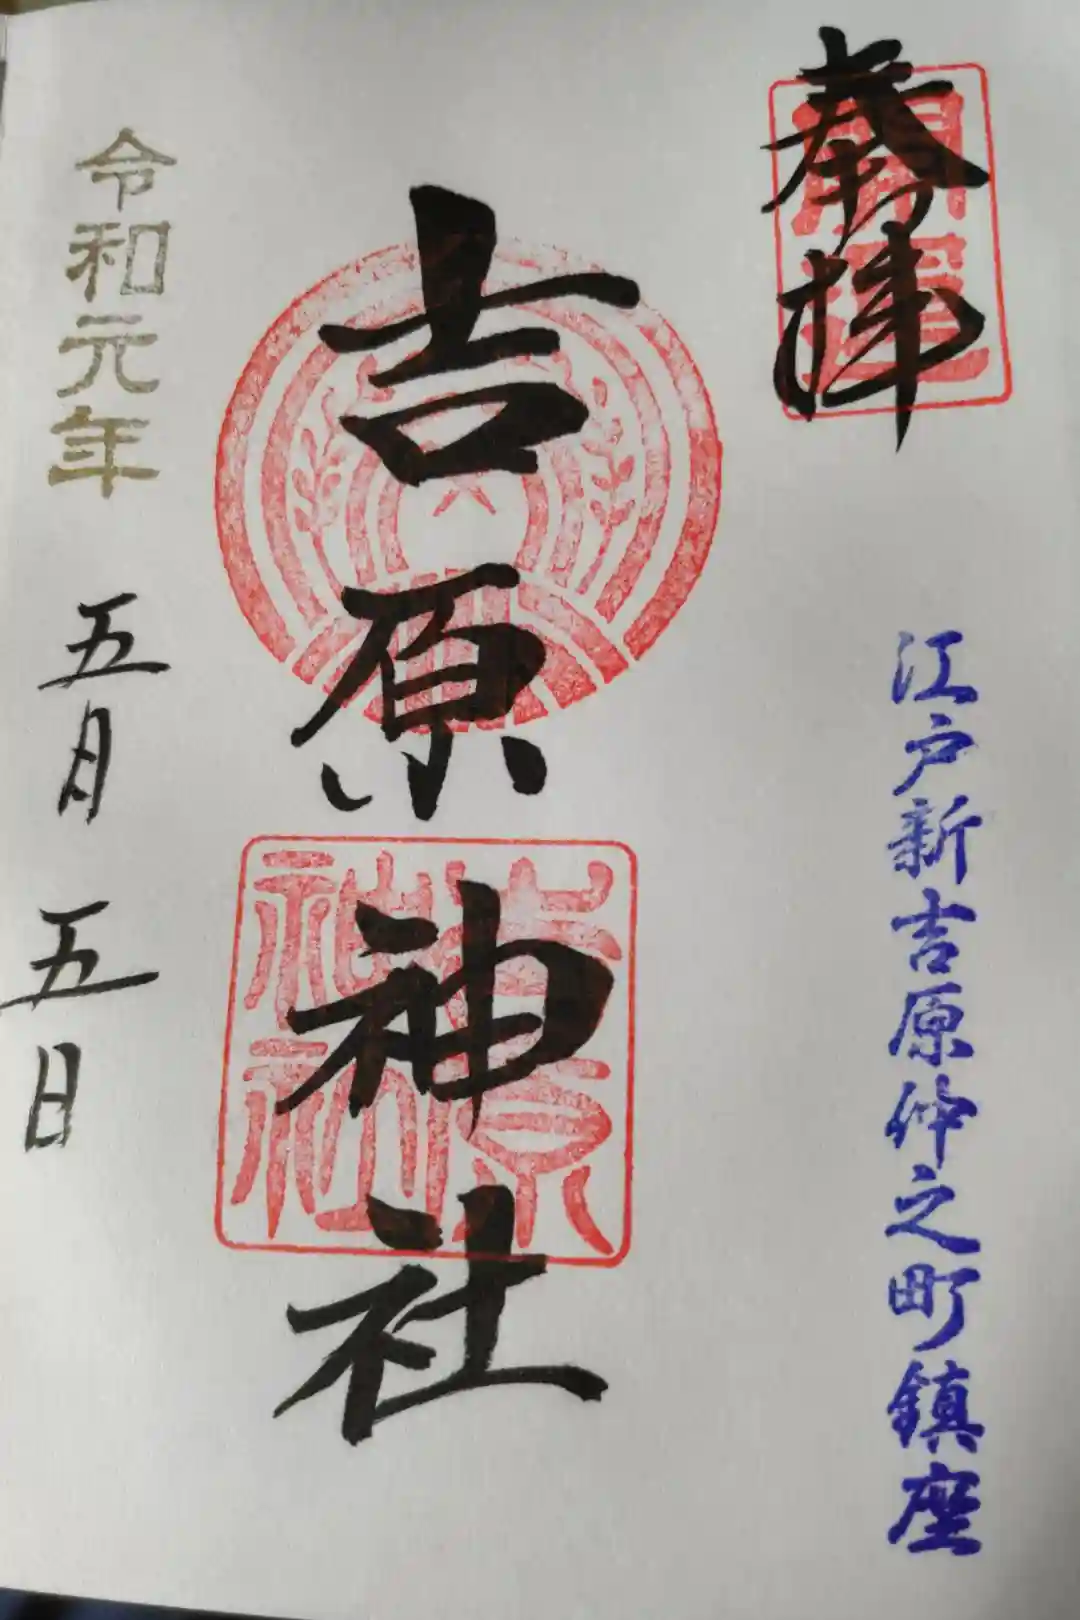 奉拝
開運
江戸新吉原仲之町鎮座
吉原神社
吉原
神社
令和元年
五月五日